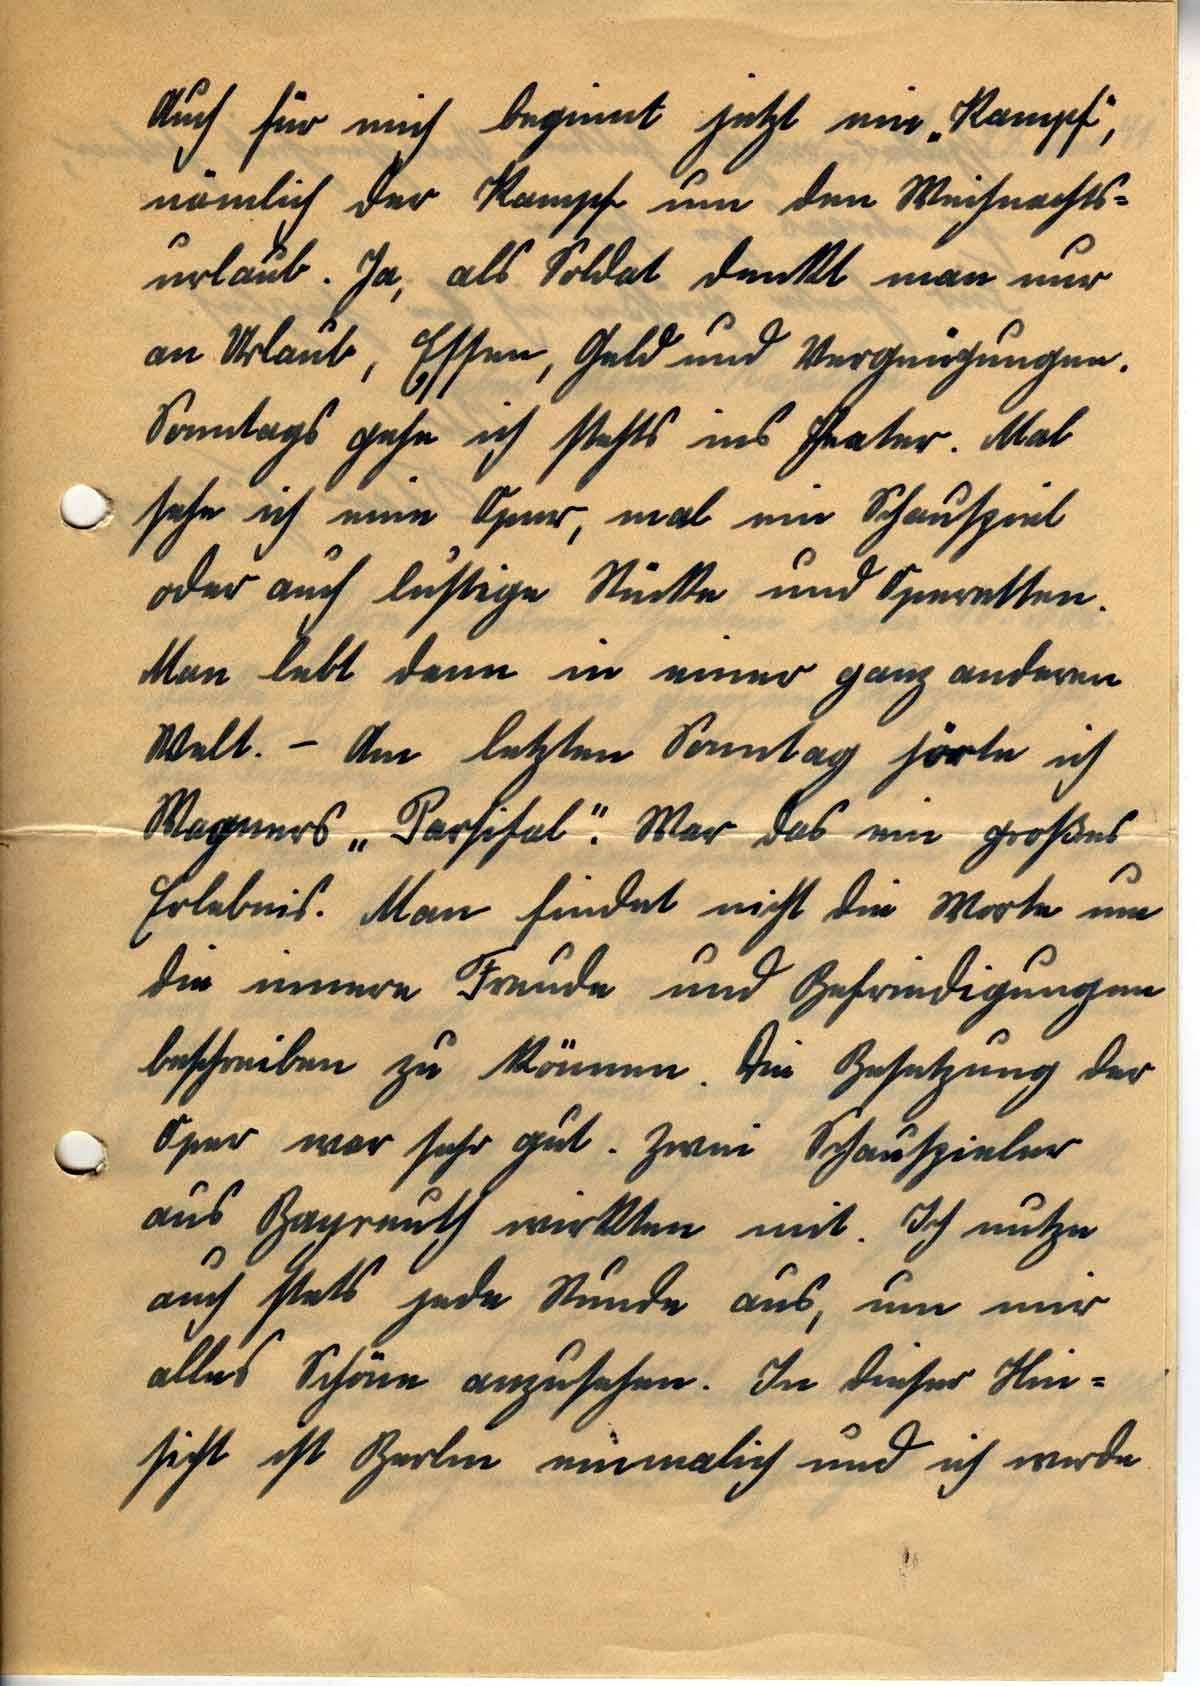 Auch für mich beginnt jetzt ein „Kampf“,
nämlich der Kampf um den Weihnachts=
urlaub. Ja, als Soldat denkt man nur
an Urlaub, Essen, Geld und Vergnügungen.
Sonntags gehe ich stehts ins Theater. Mal
sehe ich eine Oper, mal ein Schauspiel
oder auch lustige Stücke und Operetten.
Man lebt dann in einer ganz anderen
Welt. – Am letzten Sonntag hörte ich
Wagners „Parsifal“. War das ein großes
Erlebnis. Man findet nicht die Worte um
die innere Freude und Befriedigungen
beschreiben zu können. Die Besetzung der
Oper war sehr gut. Zwei Schauspieler
aus Bayreuth wirkten mit. Ich nutze
auch stets jede Stunde aus, um mir
alles Schöne anzusehen. In dieser Hin=
sicht ist Berlin einmalich und ich werde